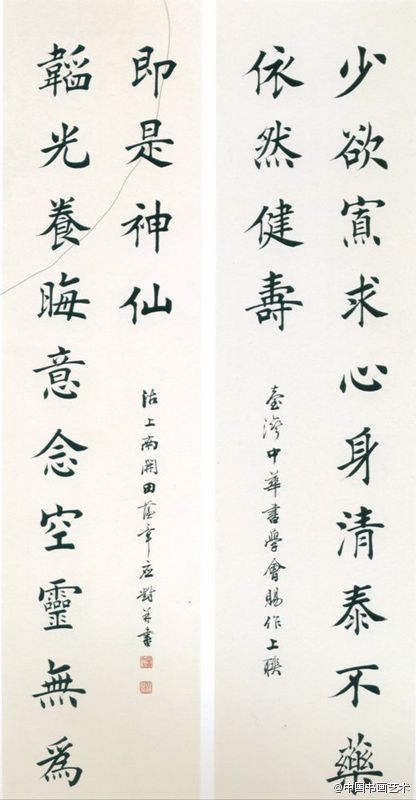 少欲寡求心身清泰不藥
依然健壽
臺灣中華書學會賜作上聯
韜光養晦意念空靈無爲
即是神仙
沽上南開田蘊章應對并書
@中国书画艺术